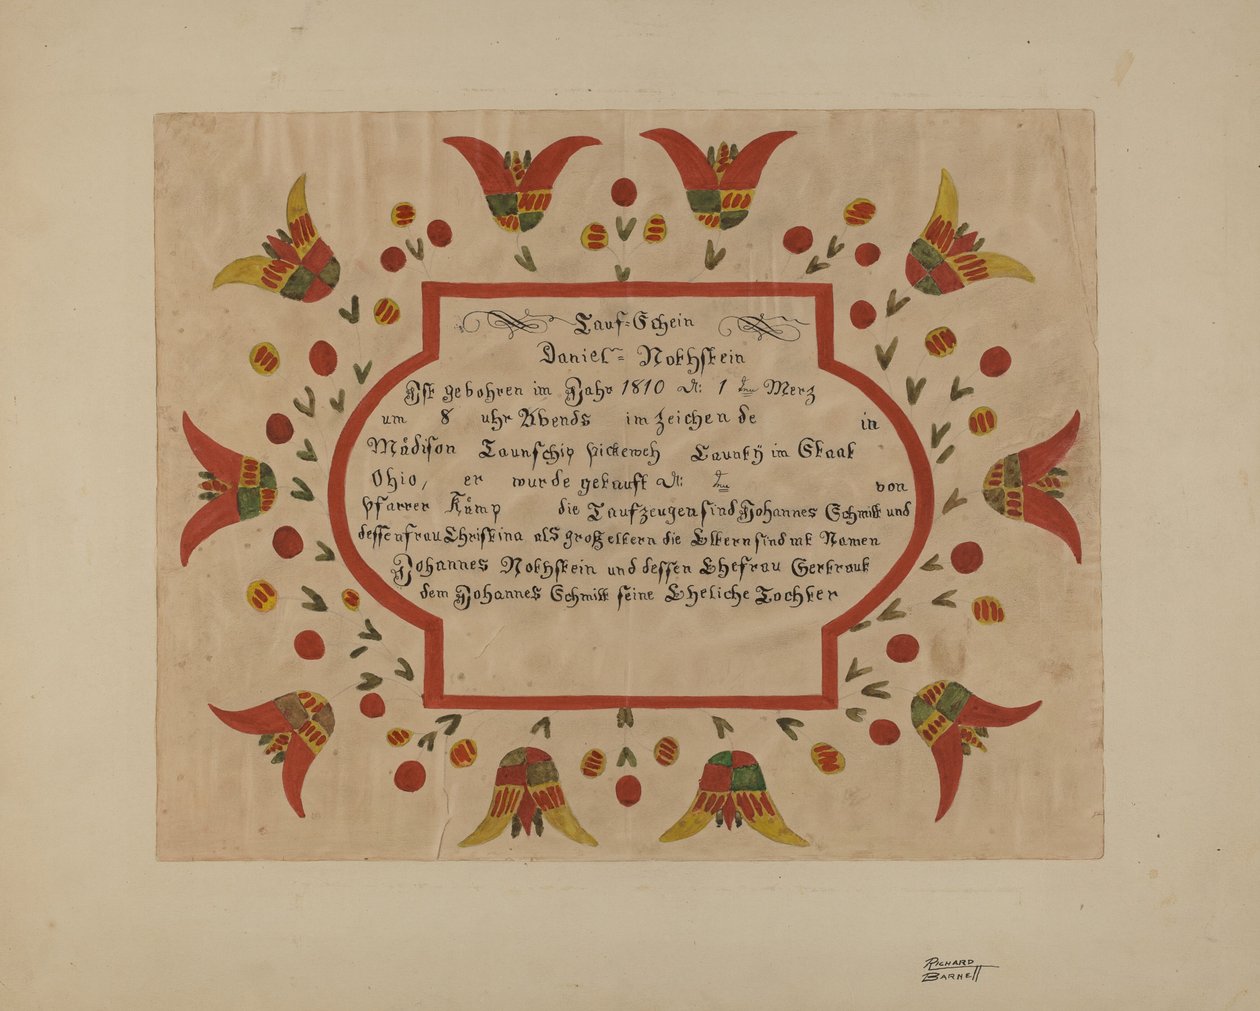 Tauf=Schein
Daniel= Nothstein
Ist gebohren im Jahr 1810 d: 1 ten Merz
um 8 uhr Abends im zeichen de in
Mådison Taunschip pickeweh Caunty im Staat
Ohio, er wurde getauft d: ten von
pfarrer Kåmp die Taufzeugen sind Johannes Schmitt und
dessen frau Christina als groß eltern die Eltern sind mt Namen
Johannes Nothstein und dessen Ehefrau Gertraut
dem Johannes Schmitt seine Eheliche Tochter
RICHARD
BARNETT